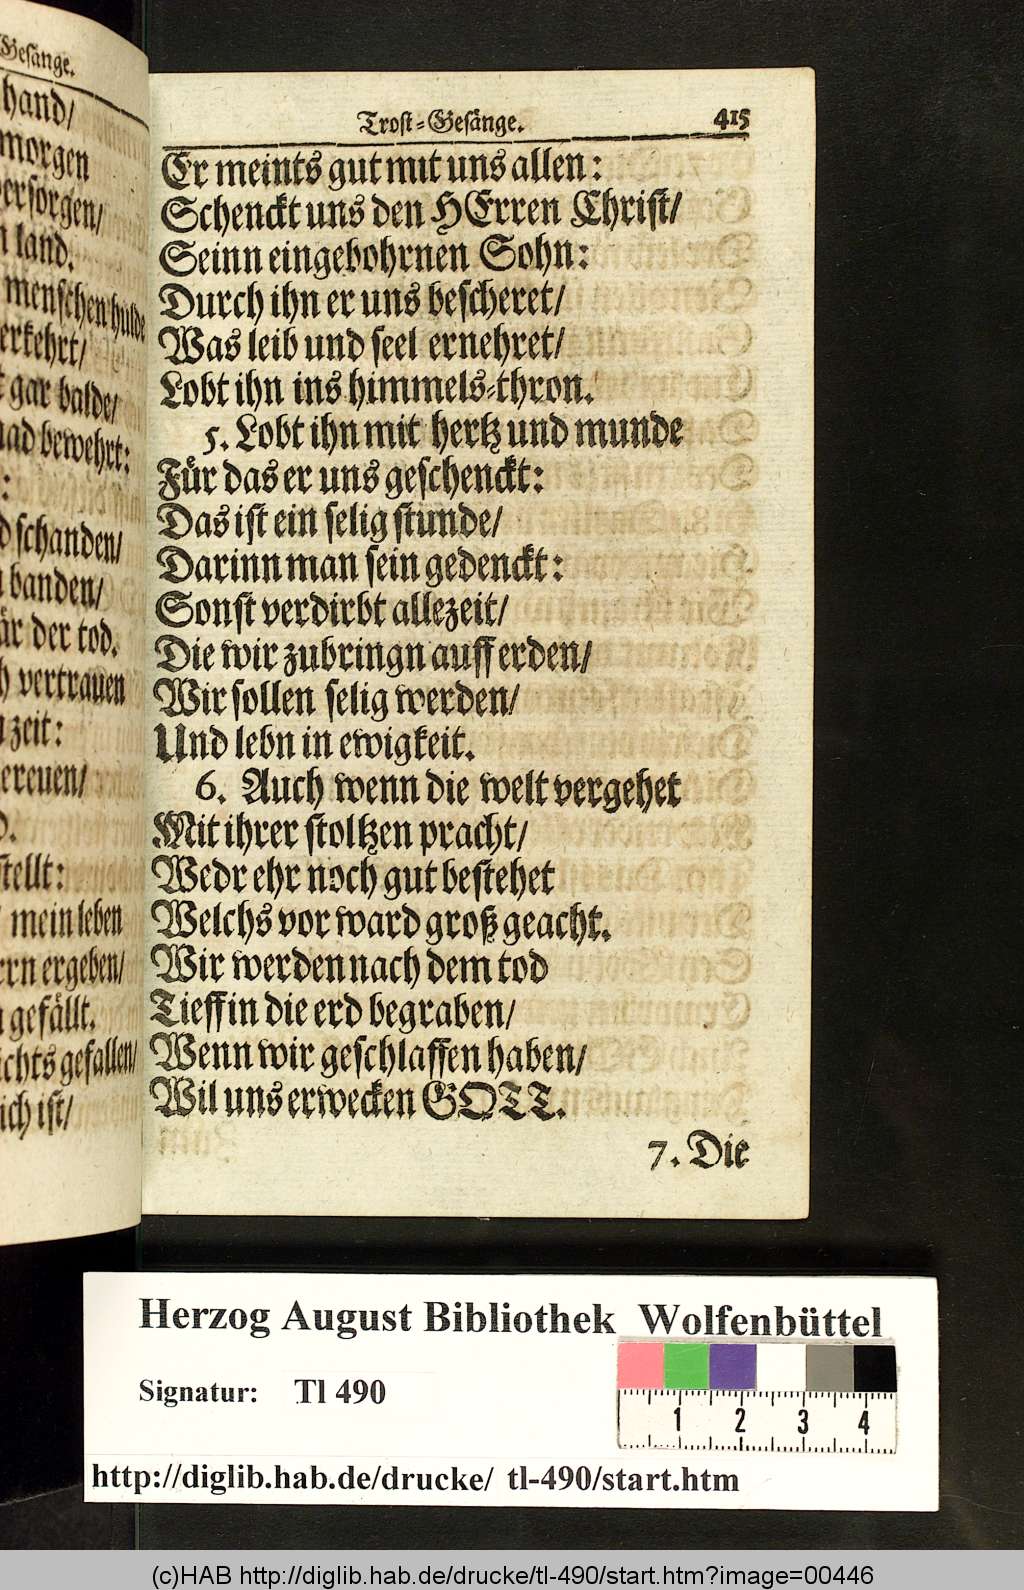 Gesänge.
hand/
morgen
versorgen/
land.
menschen hulde
verkehrt/
gar balde/
bewehrt:
:
schanden/
banden/
der tod.
vertrauen
zeit:
gereuen/
stellt:
mein leben
ergeben/
gefällt.
gefallen/
ist/
Trost-Gesänge. 415
Er meints gut mit uns allen:
Schenckt uns den HErren Christ/
Seinn eingebohrnen Sohn:
Durch ihn er uns bescheret/
Was leib und seel ernehret/
Lobt ihn ins himmels-thron.
5. Lobt ihn mit hertz und munde
Für das er uns geschenckt:
Das ist ein selig stunde/
Darinn man sein gedenckt:
Sonst verdirbt allezeit/
Die wir zubringn auff erden/
Wir sollen selig werden/
Und lebn in ewigkeit.
6. Auch wenn die welt vergehet
Mit ihrer stoltzen pracht/
Wedr ehr noch gut bestehet
Welchs vor ward groß geacht.
Wir werden nach dem tod
Tieff in die erd begraben/
Wenn wir geschlaffen haben/
Wil uns erwecken GOTT.
7. Die
Herzog August Bibliothek Wolfenbüttel
Signatur: Tl 490
1 2 3 4
http://diglib.hab.de/drucke/ tl-490/start.htm
(c)HAB http://diglib.hab.de/drucke/tl-490/start.htm?image=00446